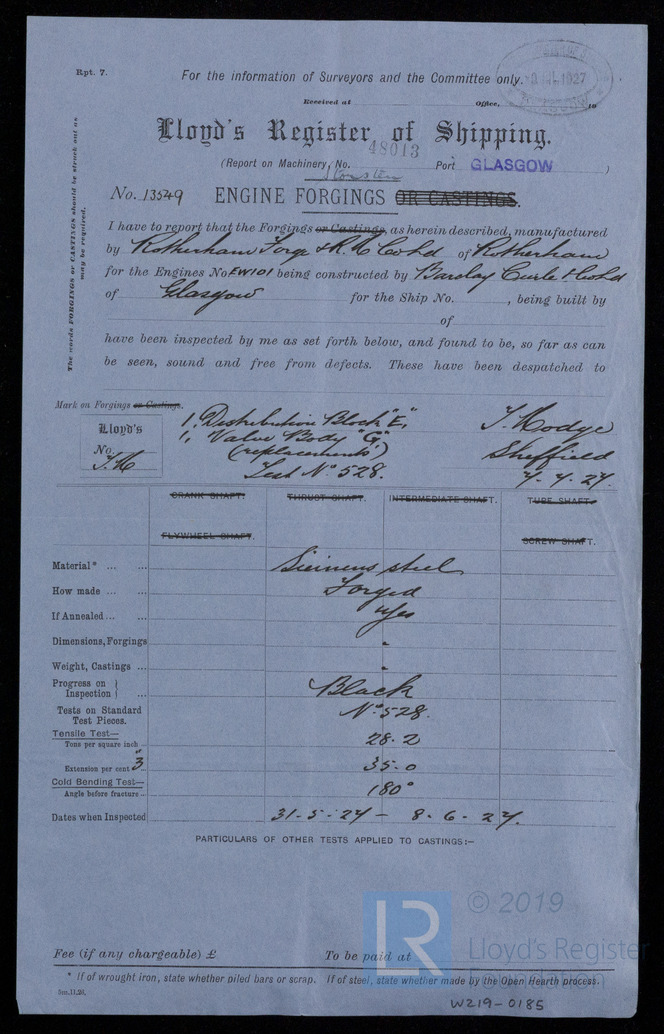 Rpt. 7.
For the information of Surveyors and the Committee only.
1927
Received at Office, 19
Lloyd's Register of Shipping.
48013
(Report on Machinery, No. Port GLASGOW )
No. 13549 ENGINE FORGINGS OR CASTINGS.
The words FORGINGS or CASTINGS should be struck out as may be required.
I have to report that the Forgings or Castings, as herein described, manufactured
by Rotherham Forge & R. M. Co Ld of Rotherham
for the Engines No EW101 being constructed by Barclay Curle & Co Ld
of Glasgow for the Ship No. , being built by
of
have been inspected by me as set forth below, and found to be, so far as can
be seen, sound and free from defects. These have been despatched to
Mark on Forgings or Castings.
Lloyd's
No.
T.H
1, Distribution Block "E",
1, Valve Body "G"
(replacements)
Test No 528.
Sheffield
7. 7. 27.
CRANK SHAFT. THRUST SHAFT. INTERMEDIATE SHAFT. TUBE SHAFT.
FLYWHEEL SHAFT. SCREW SHAFT.
Material* ... ... Siemens steel
How made ... ... Forged
If Annealed ... ... Yes
Dimensions, Forgings "
Weight, Castings ... "
Progress on Inspection } ... Black
Tests on Standard Test Pieces. No 528.
Tensile Test—
Tons per square inch 28.2
Extension per cent 3" 35.0
Cold Bending Test—
Angle before fracture 180°
Dates when Inspected 31-5-27 - 8.6.27.
PARTICULARS OF OTHER TESTS APPLIED TO CASTINGS:—
Fee (if any chargeable) £ To be paid at
* If of wrought iron, state whether piled bars or scrap. If of steel, state whether made by the Open Hearth process.
5m.11.26.
LR
© 2019
Lloyd's Register
Foundation
W219-0185